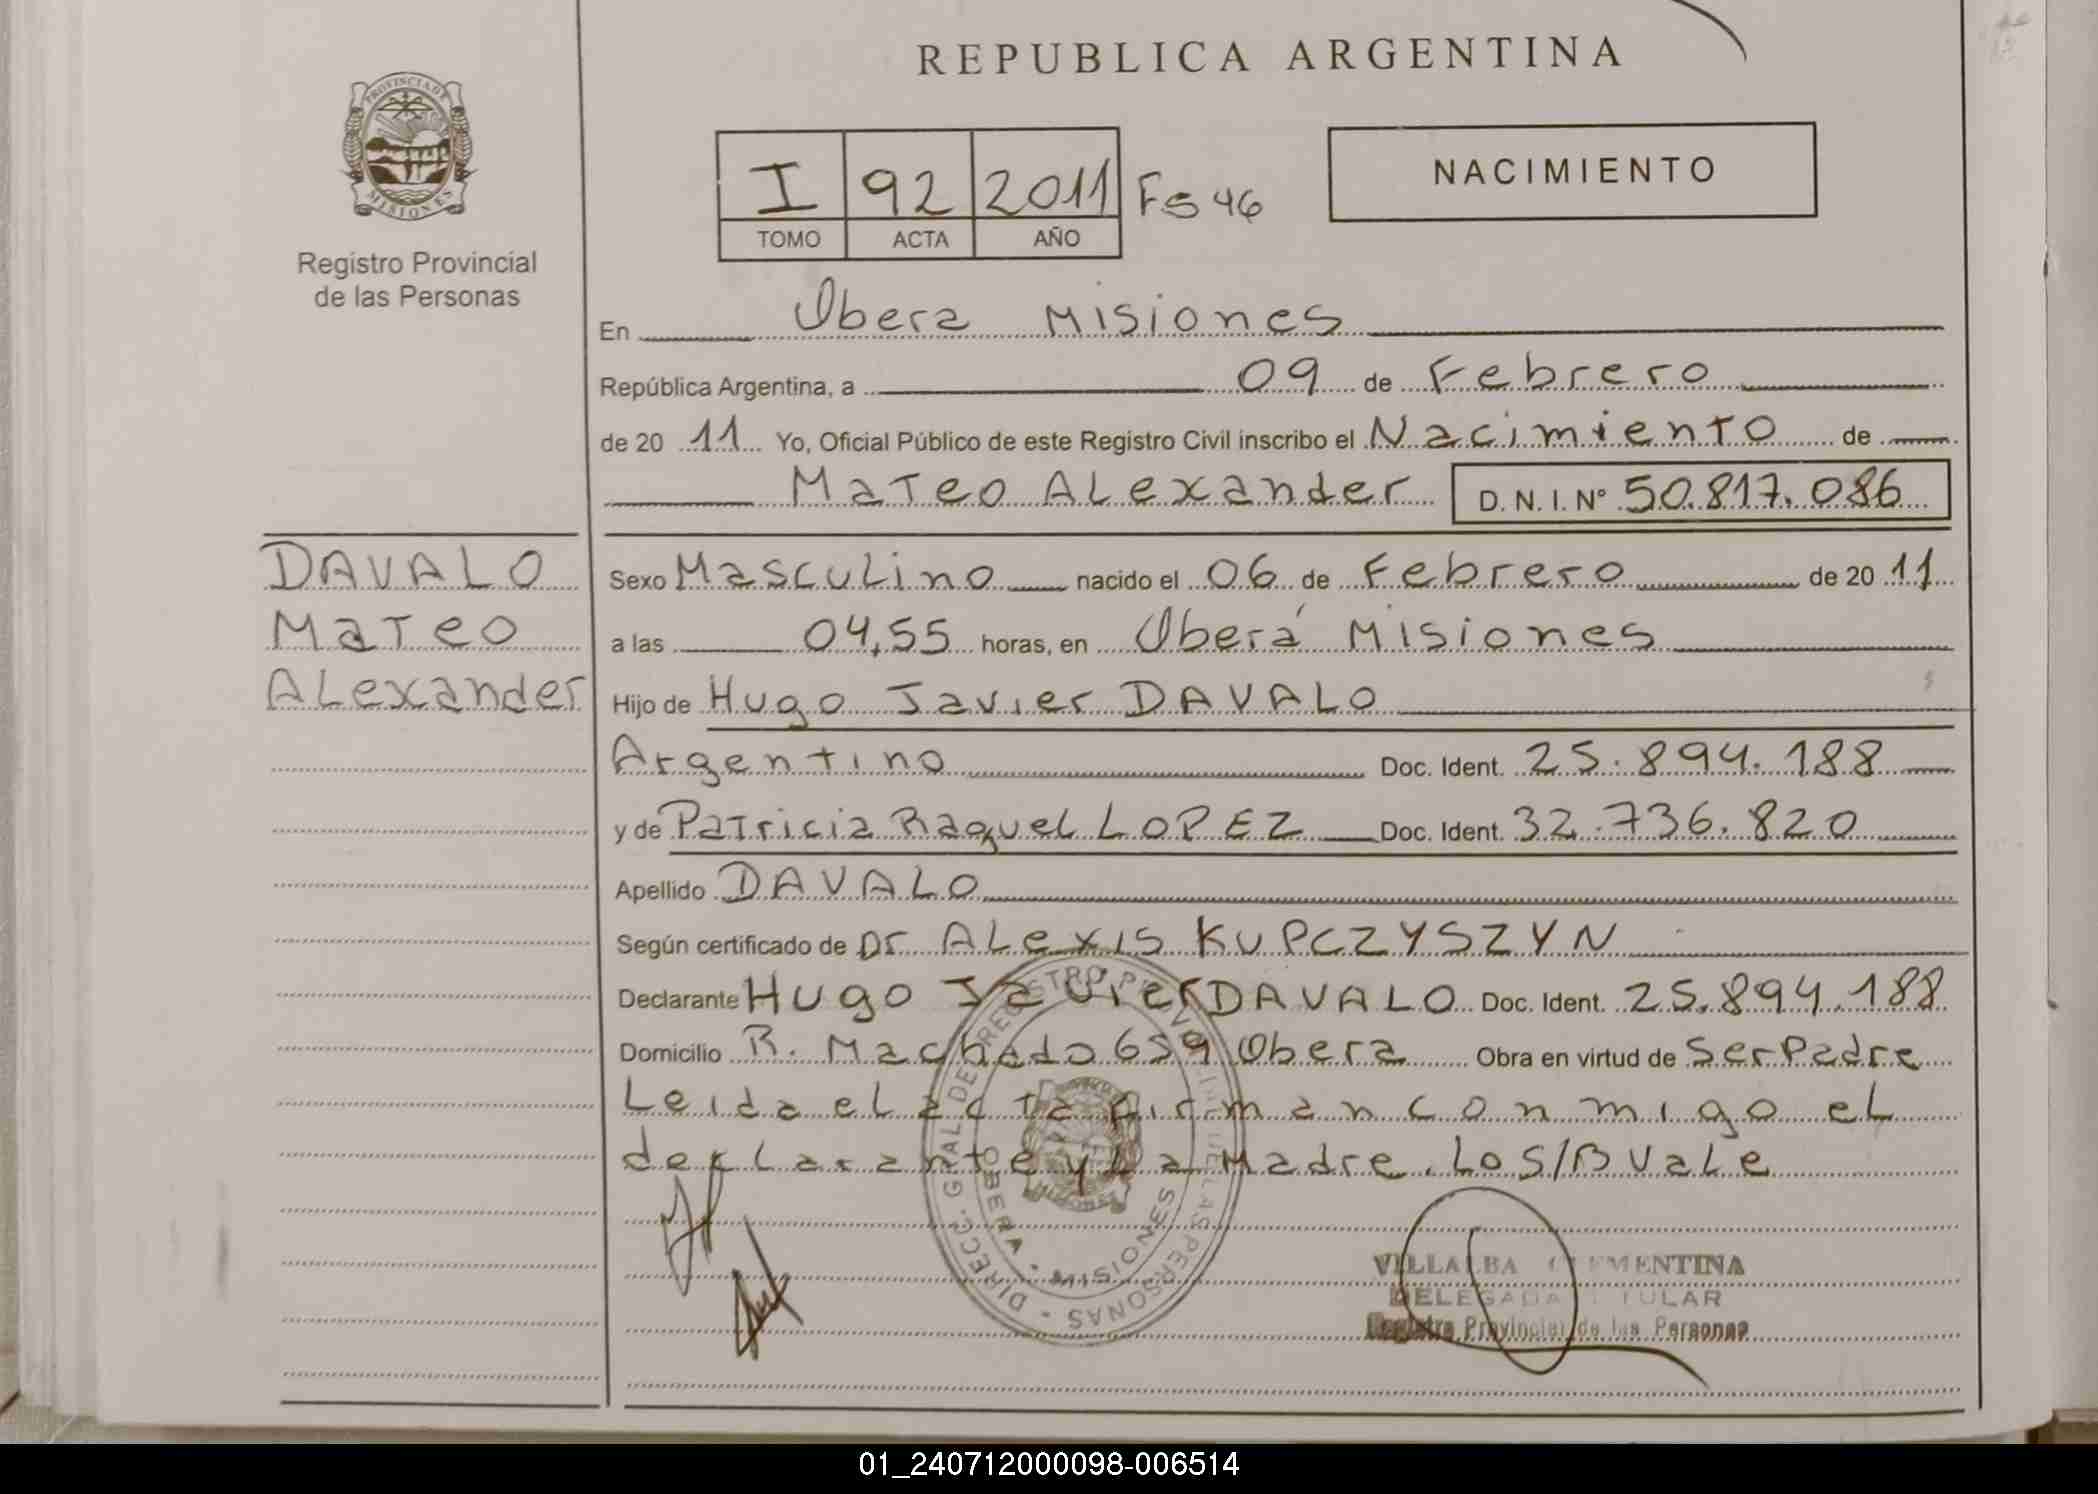 REPUBLICA ARGENTINA
PROVINCIA DE
MISIONES
Registro Provincial
de las Personas
I 92 2011 Fs 46
TOMO ACTA AÑO
NACIMIENTO
En Obera Misiones
República Argentina, a 09 de Febrero
de 20 11 Yo, Oficial Público de este Registro Civil inscribo el Nacimiento de
Mateo Alexander D. N. I. Nº 50.817.086
DAVALO
Mateo
Alexander
Sexo Masculino nacido el 06 de Febrero de 20 11
a las 04,55 horas, en Oberá Misiones
Hijo de Hugo Javier DAVALO
Argentino Doc. Ident. 25.894.188
y de Patricia Raquel LOPEZ Doc. Ident. 32.736.820
Apellido DAVALO
Según certificado de Dr. Alexis KUPCZYSZYN
Declarante Hugo Javier DAVALO Doc. Ident. 25.894.188
Domicilio R. Machado 659 Obera Obra en virtud de Ser Padre
Leida el acta firman conmigo el
declarante y La Madre. Lo S/B Vale
DIRECC. GRAL. DEL REGISTRO PROVINCIAL DE LAS PERSONAS
OBERA - MISIONES
VILLALBA CLEMENTINA
DELEGADA TITULAR
Registro Provincial de las Personas
01_240712000098-006514